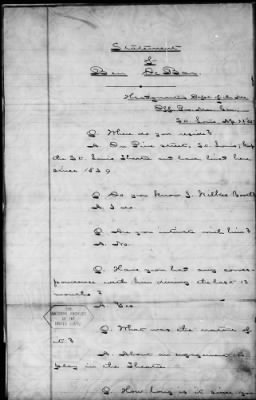 Statement
of
Ben De Bar.
Headquarters Dept of the Mo
Off Pro Mar Gen.
St. Louis Ap 22
Q. Where do you reside?
A. On Pine street, St. Louis, Keep
the St. Louis Theatre and have lived here
since 1839
Q. Do you know J. Wilkes Booth
A. I do.
Q. Are you intimate with him?
A. No.
Q. Have you had any corres-
pondence with him during the last 12
months?
A. Yes
Q. What was the nature of
it?
A. About an engagement to
play in the Theatre
Q. How long is it since you
THE
NATIONAL ARCHIVES
OF THE
UNITED STATES